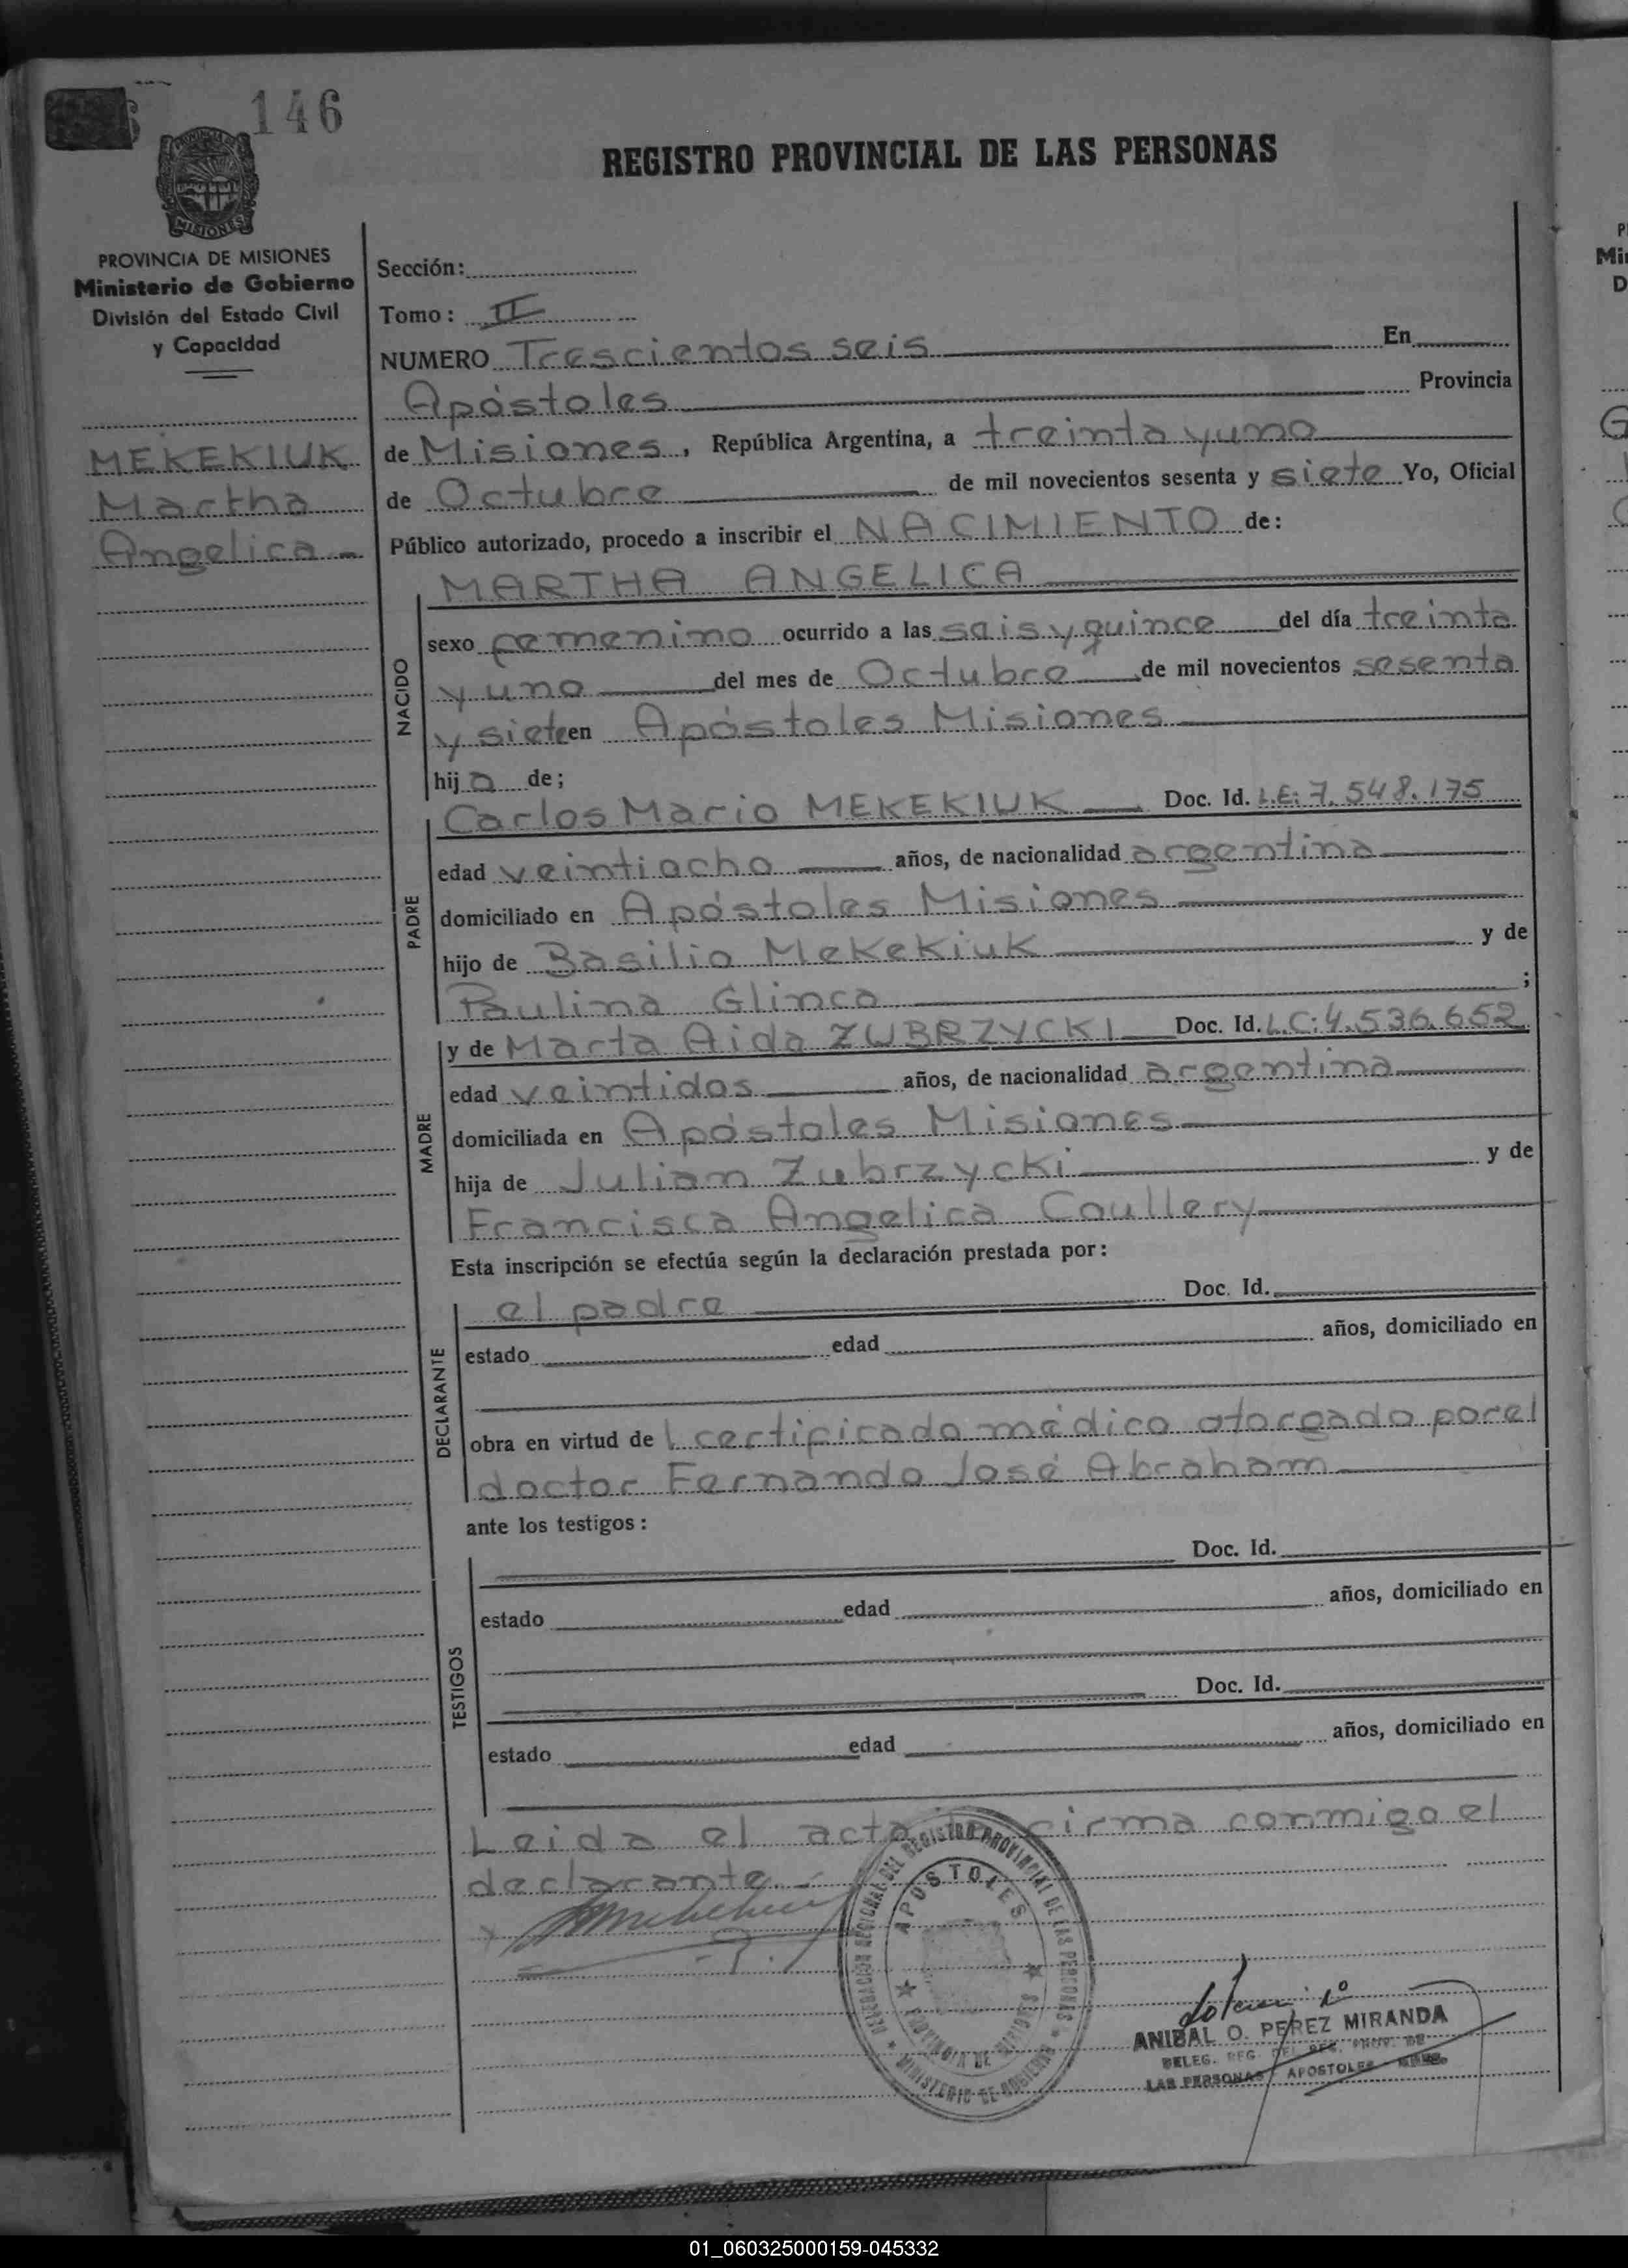 146
REGISTRO PROVINCIAL DE LAS PERSONAS
PROVINCIA DE MISIONES
Ministerio de Gobierno
División del Estado Civil
y Capacidad
MEKEKIUK
Martha
Angelica
Sección:
Tomo: II
NUMERO Trescientos seis En
Apóstoles Provincia
de Misiones, República Argentina, a treinta y uno
de Octubre de mil novecientos sesenta y siete Yo, Oficial
Público autorizado, procedo a inscribir el NACIMIENTO de:
NACIDO
MARTHA ANGELICA
sexo femenino ocurrido a las seis y quince del día treinta
y uno del mes de Octubre de mil novecientos sesenta
y siete en Apóstoles Misiones
hija de;
PADRE
Carlos Mario MEKEKIUK Doc. Id. L.E: 7.548.175
edad veintiocho años, de nacionalidad argentina
domiciliado en Apóstoles Misiones
hijo de Basilio Mekekiuk y de
Paulina Glinca ;
MADRE
y de Marta Aida ZUBRZYCKI Doc. Id. L.C: 4.536.652
edad veintidos años, de nacionalidad argentina
domiciliada en Apóstoles Misiones
hija de Julian Zubrzycki y de
Francisca Angelica Coullery
Esta inscripción se efectúa según la declaración prestada por:
DECLARANTE
el padre Doc. Id.
estado edad años, domiciliado en
obra en virtud del certificado médico otorgado por el
doctor Fernando José Abraham
ante los testigos:
TESTIGOS
Doc. Id.
estado edad años, domiciliado en
Doc. Id.
estado edad años, domiciliado en
Leida el acta firma conmigo el
declarante.-
DELEGACION REGIONAL DEL REGISTRO PROVINCIAL DE LAS PERSONAS
APOSTOLES
PROVINCIA DE MISIONES
MINISTERIO DE GOBIERNO
ANIBAL O. PEREZ MIRANDA
DELEG. REG. DEL REG. PROV. DE
LAS PERSONAS APOSTOLES
01_060325000159-045332